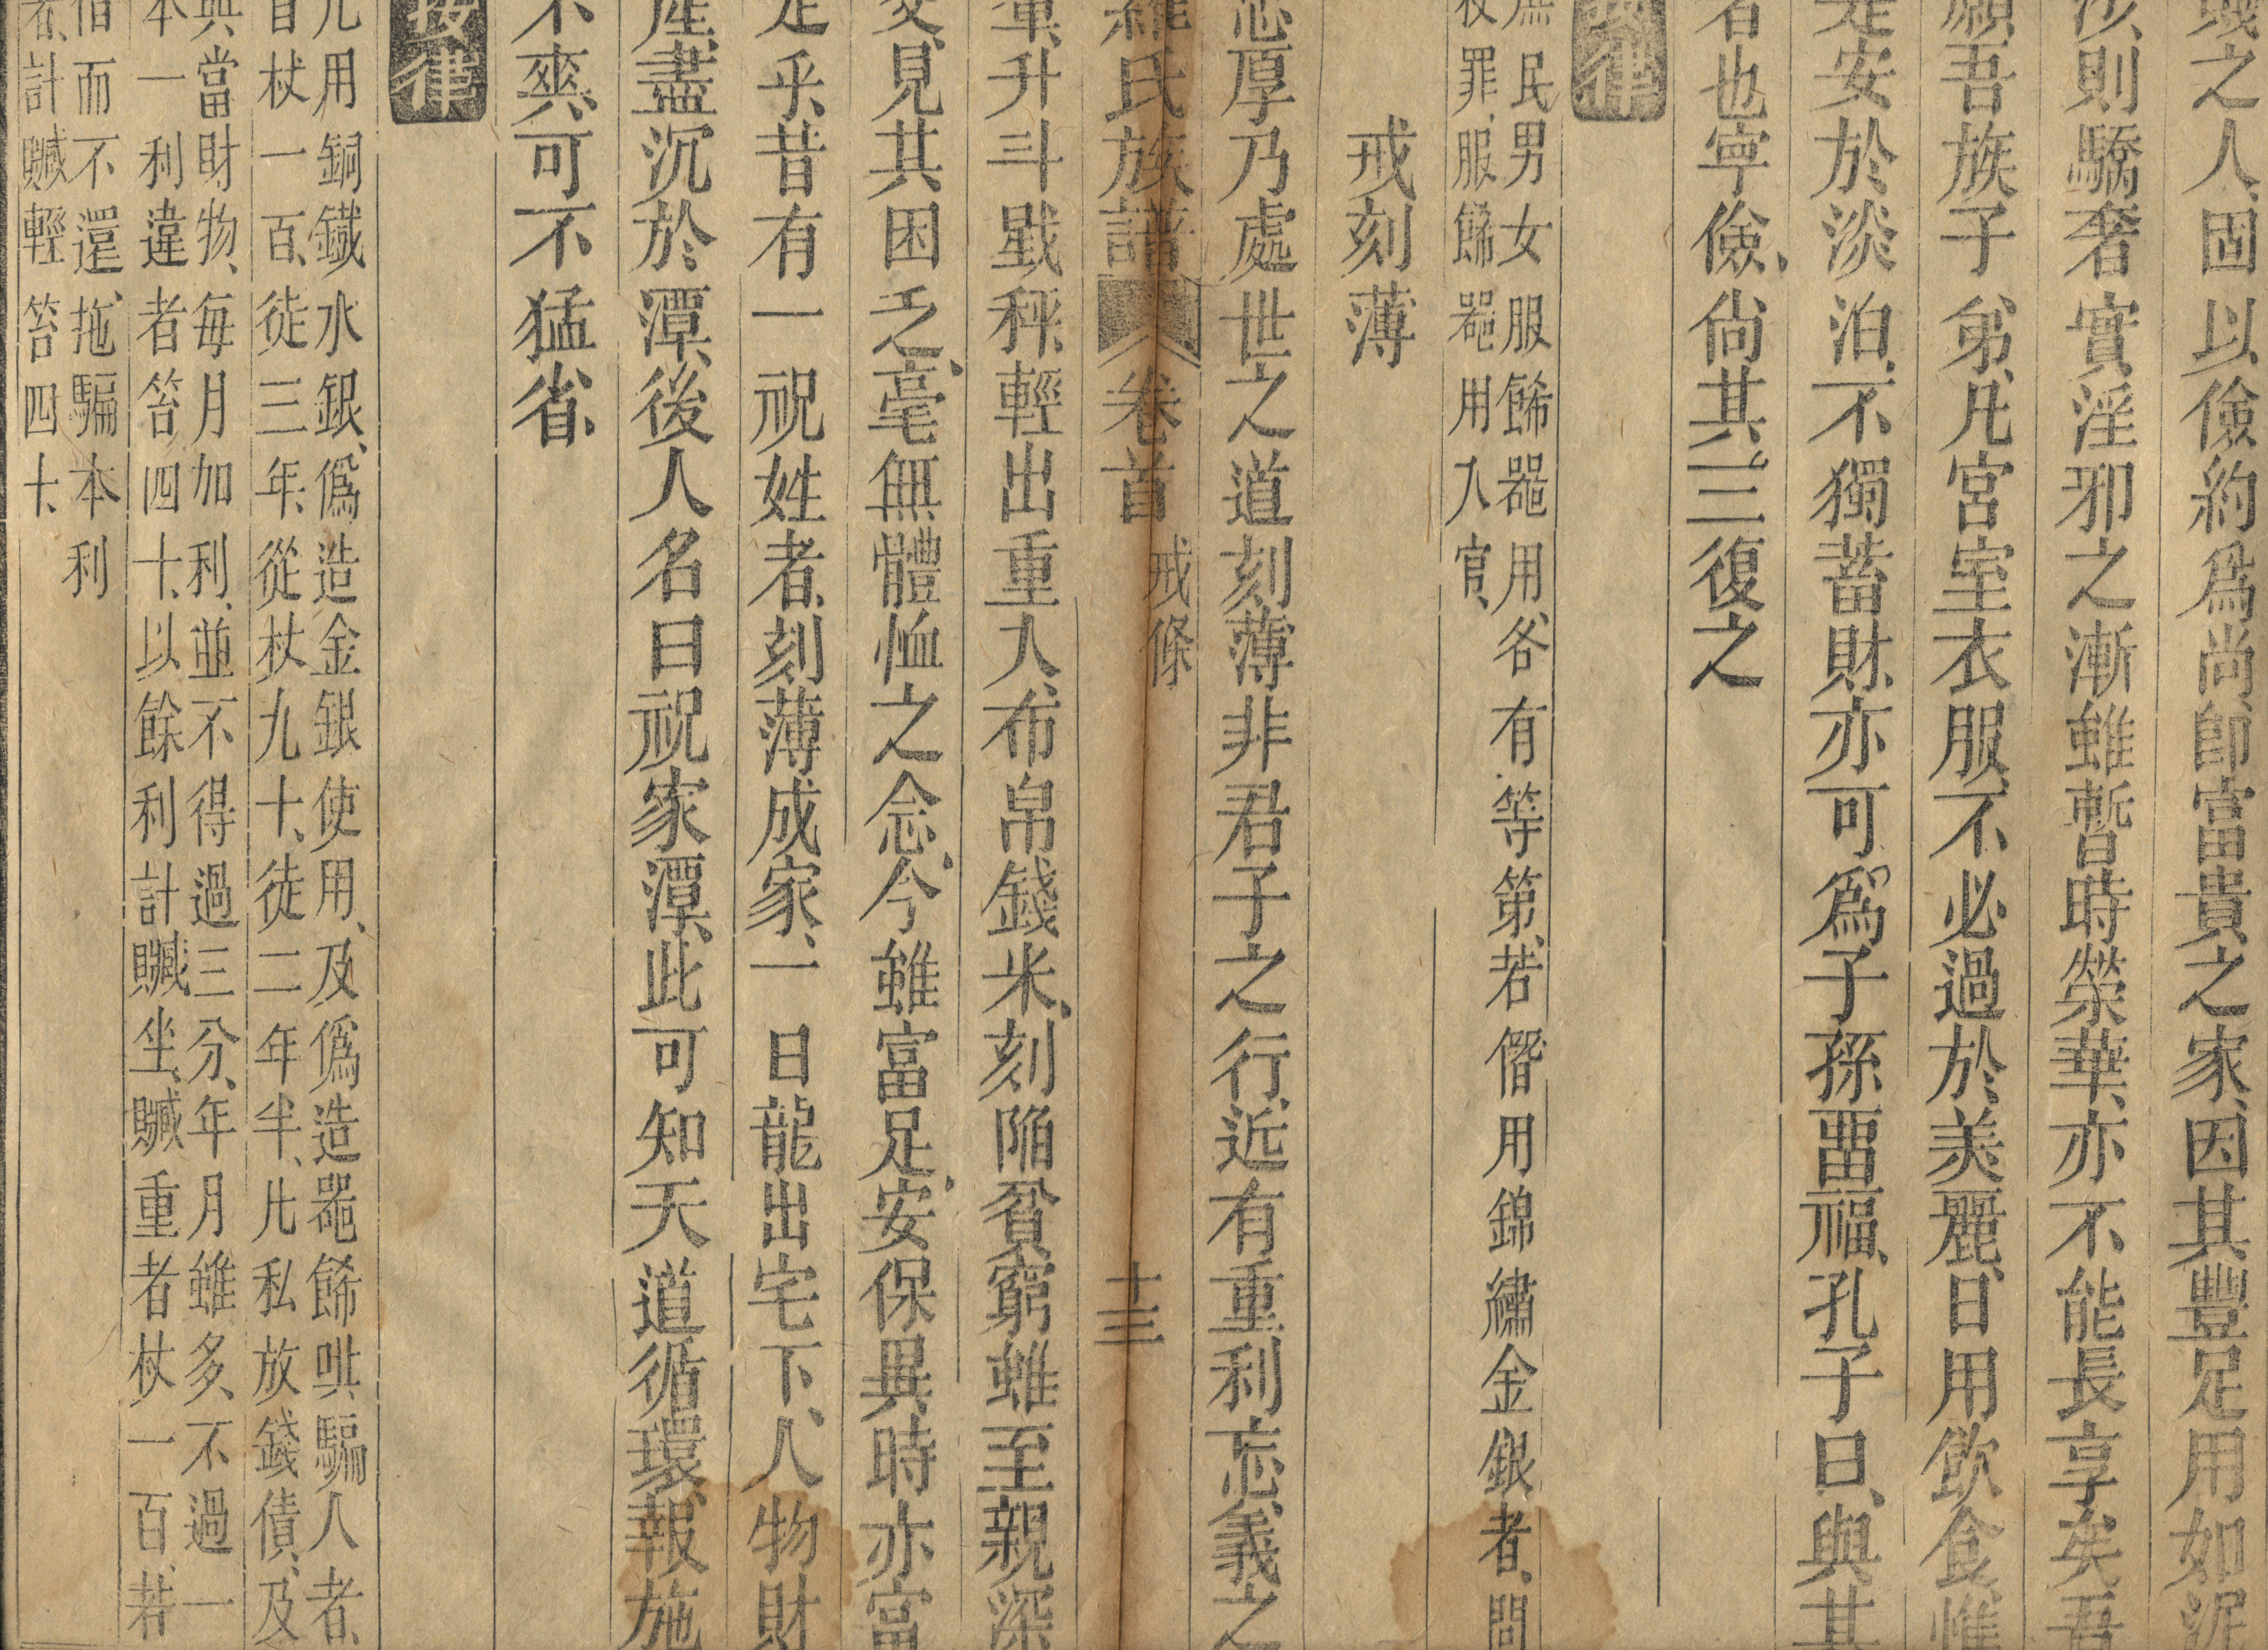 之人、固以儉約爲尚、卽富貴之家、因其豐足、用如泥
沙、則驕奢實淫邪之漸、雖暫時榮華、亦不能長享矣、吾
願吾族子弟、凡宮室衣服、不必過於美麗、日用飲食、惟
是安於淡泊、不獨蓄財、亦可爲子孫畱福、孔子曰、與其
者也寧儉、尚其三復之
按律
庶民男女服餙器用、各有等第、若僭用錦繡金銀者、問
杖罪、服餙器用入官、
戒刻薄
忠厚乃處世之道、刻薄非君子之行、近有重利忘義之
羅氏族譜 卷首 戒條 十三
輩、升斗戥秤、輕出重入、布帛錢米、刻陥貧窮、雖至親深
交、見其困乏、毫無體恤之念、今雖富足、安保異時亦富
足乎、昔有一祝姓者、刻薄成家、一日龍出宅下、人物財
產、盡沉於潭、後人名曰祝家潭、此可知天道循環、報施
不爽、可不猛省、
按律
凡用銅鐵水銀、僞造金銀使用、及僞造器餙哄騙人者、
首杖一百、徒三年、從杖九十、徒二年半、凡私放錢債、及
典當財物、每月加利、並不得過三分、年月雖多、不過一
本一利、違者笞四十、以餘利計贓坐、贓重者杖一百、若
借而不還、拖騙本利
者、計贓輕笞四十、